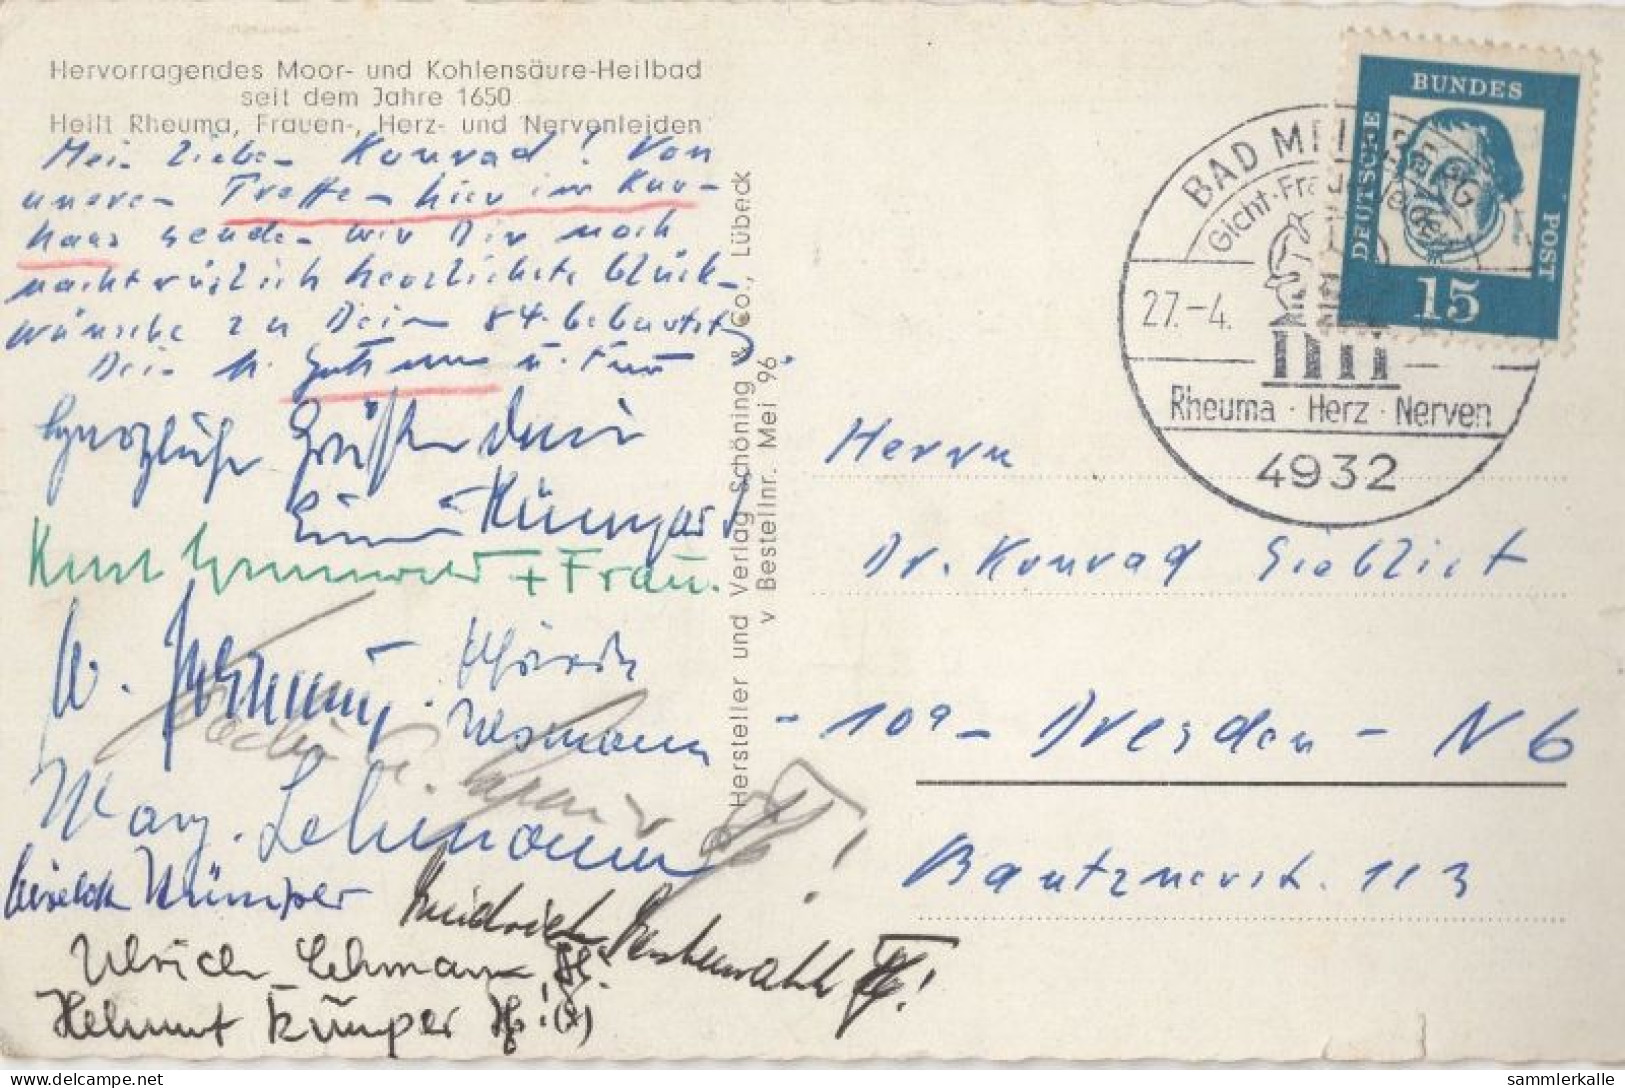 Hervorragendes Moor- und Kohlensäure-Heilbad
seit dem Jahre 1650
Heilt Rheuma, Frauen-, Herz- und Nervenleiden
Mein lieber Konrad! Von
unserem Treffen hier im Kur-
haus senden wir Dir noch
nachträglich herzlichste Glück-
wünsche zu Deim 84. Geburtstg.
Dein u. Frau
Herzliche Grüße Dein
Kümper
Kurt Grunwald + Frau.
W.
Marg. Lehmann
Kümper
Ulrich Lehmann
Helmut Kümper
Hersteller und Verlag Schöning & Co., Lübeck
v Bestellnr. Mei 96
BAD MEI BERG
Gicht-Fra
27.-4.
Rheuma · Herz · Nerven
4932
DEUTSCHE
BUNDES
POST
15
Herrn
Dr. Konrad
- 109 - Dresden - N 6
Bautznerstr. 113
sammlerkalle